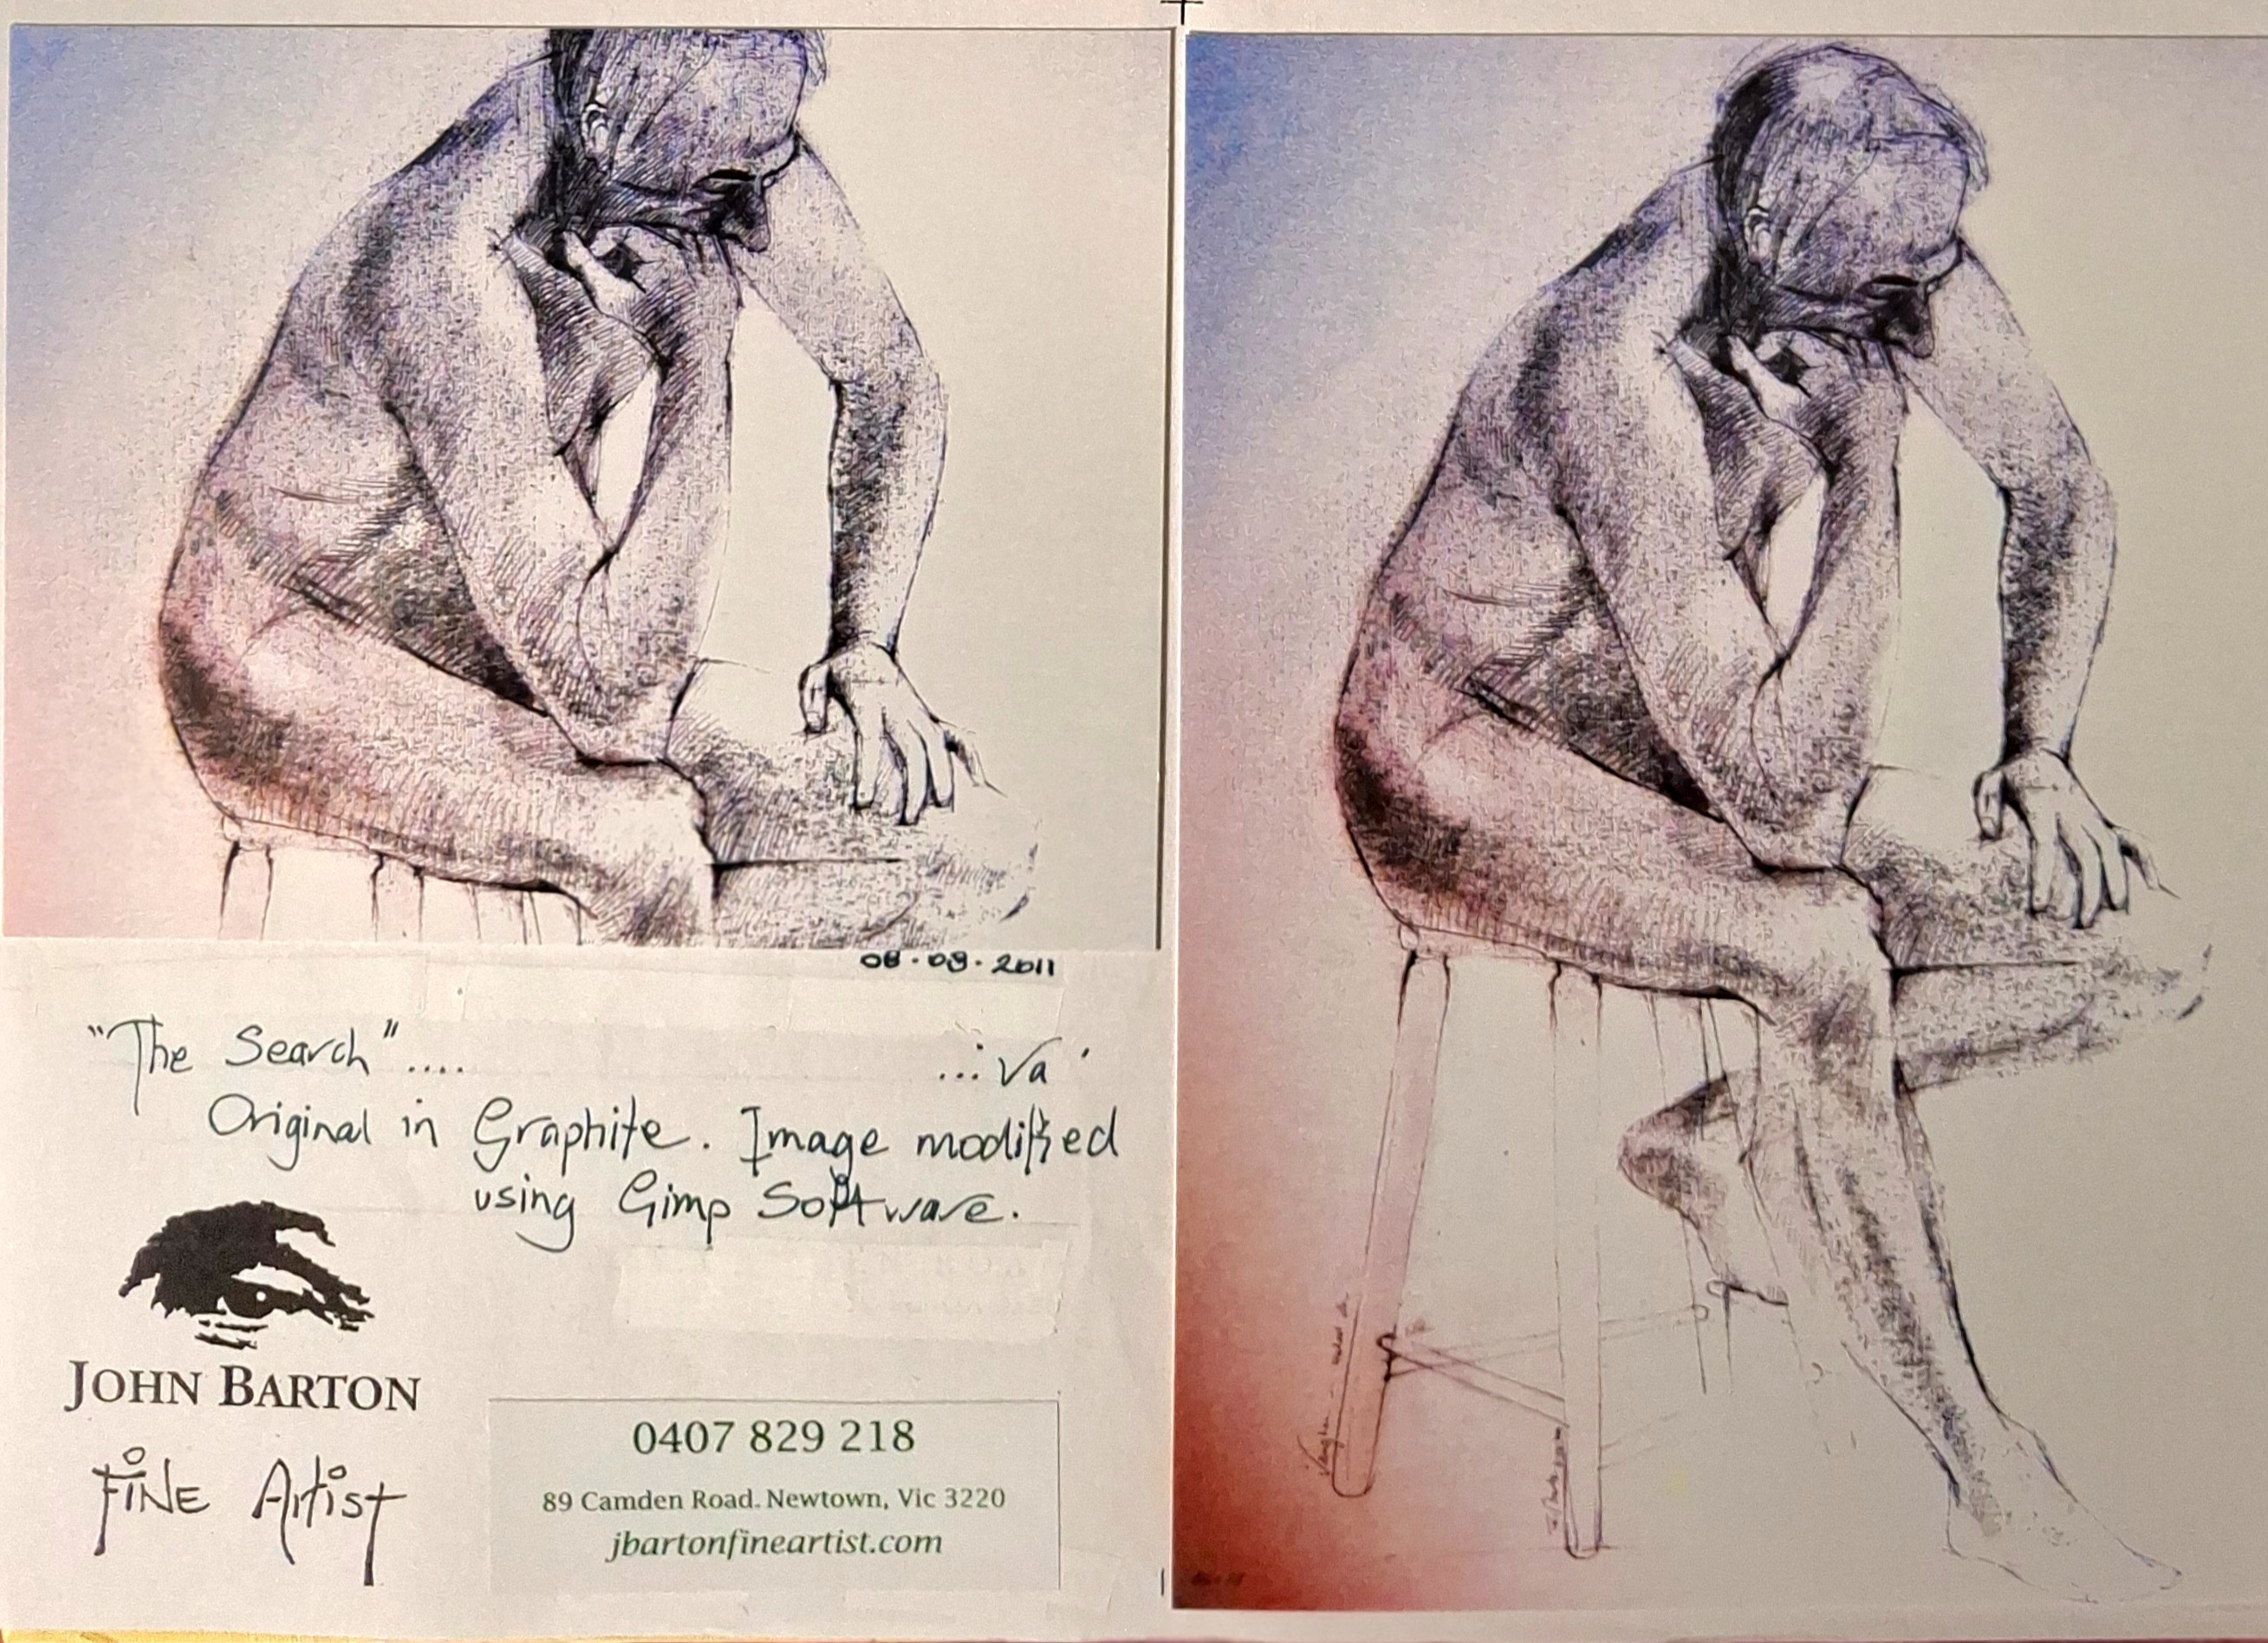 08.09.2011
"The Search".... ...Va'
Original in Graphite. Image modified
using Gimp Software.
JOHN BARTON
FINE Artist
0407 829 218
89 Camden Road. Newtown, Vic 3220
jbartonfineartist.com